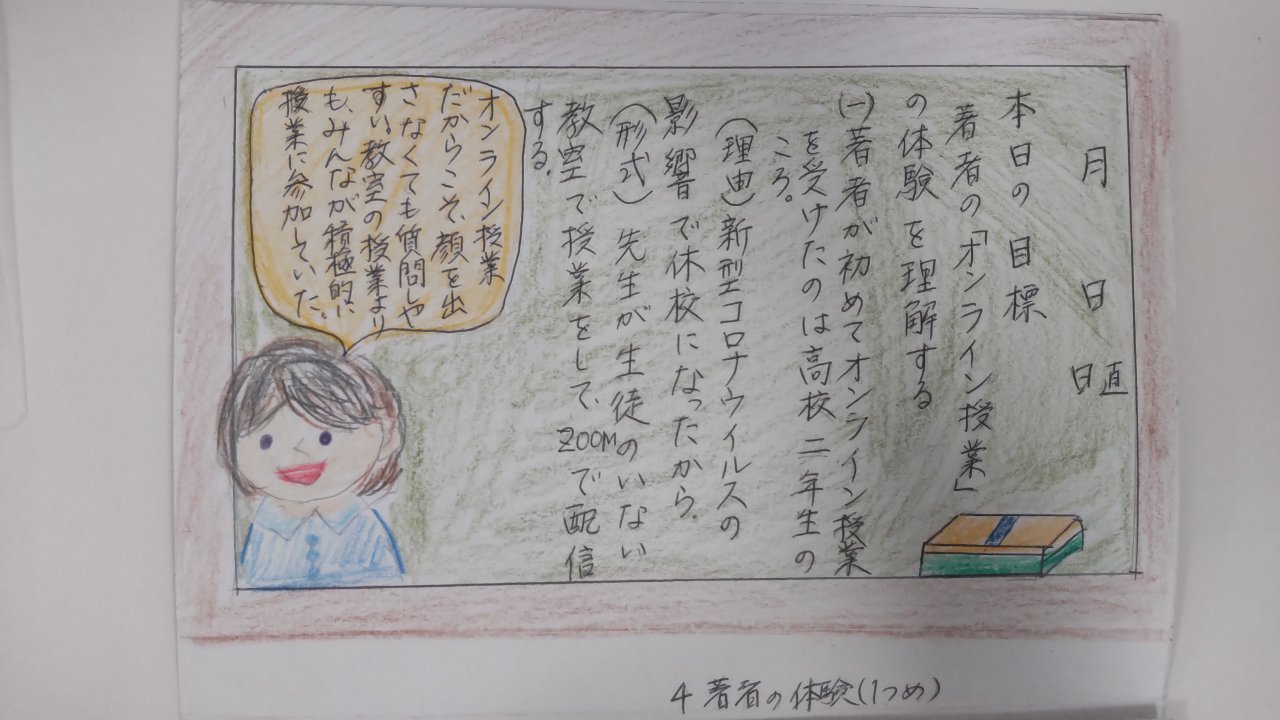 月 日 日直
本日の目標
著者の「オンライン授業」
の体験を理解する
(一)著者が初めてオンライン授業
を受けたのは高校二年生の
ころ。
(理由)新型コロナウイルスの
影響で休校になったから。
(形式)先生が生徒のいない
教室で授業をして、ZOOMで配信
する。
オンライン授業
だからこそ、顔を出
さなくても質問しや
すい。教室の授業より
も、みんなが積極的に
授業に参加していた。
4 著者の体験(1つめ)